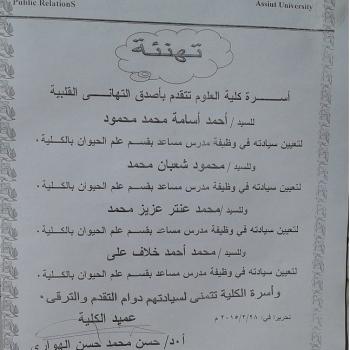 Public RelationS
Assiut University
تهنئة
أســـرة كلية العلوم تتقدم بأصدق التهانى القلبية
للسيد / أحمد أسامة محمد محمود
لتعيين سيادته في وظيفة مدرس مساعد بقسم علم الحيوان بالكلية .
وللسيد / محمود شعبان محمد
لتعيين سيادته في وظيفة مدرس مساعد بقسم علم الحيوان بالكلية .
وللسيد /محمد عنتر عزيز محمد
لتعيين سيادته في وظيفة مدرس مساعد بقسم علم الحيوان بالكلية .
وللسيد / محمد أحمد خلاف على
لتعيين سيادته في وظيفة مدرس مساعد بقسم علم الحيوان بالكلية .
وأسرة الكلية تتمنى لسيادتهم دوام التقدم والترقى
تحريرا في: ٢٠١٥/٢/٢٨ م
عميد الكلية
أ.د/ حسن محمد حسن الهوارى